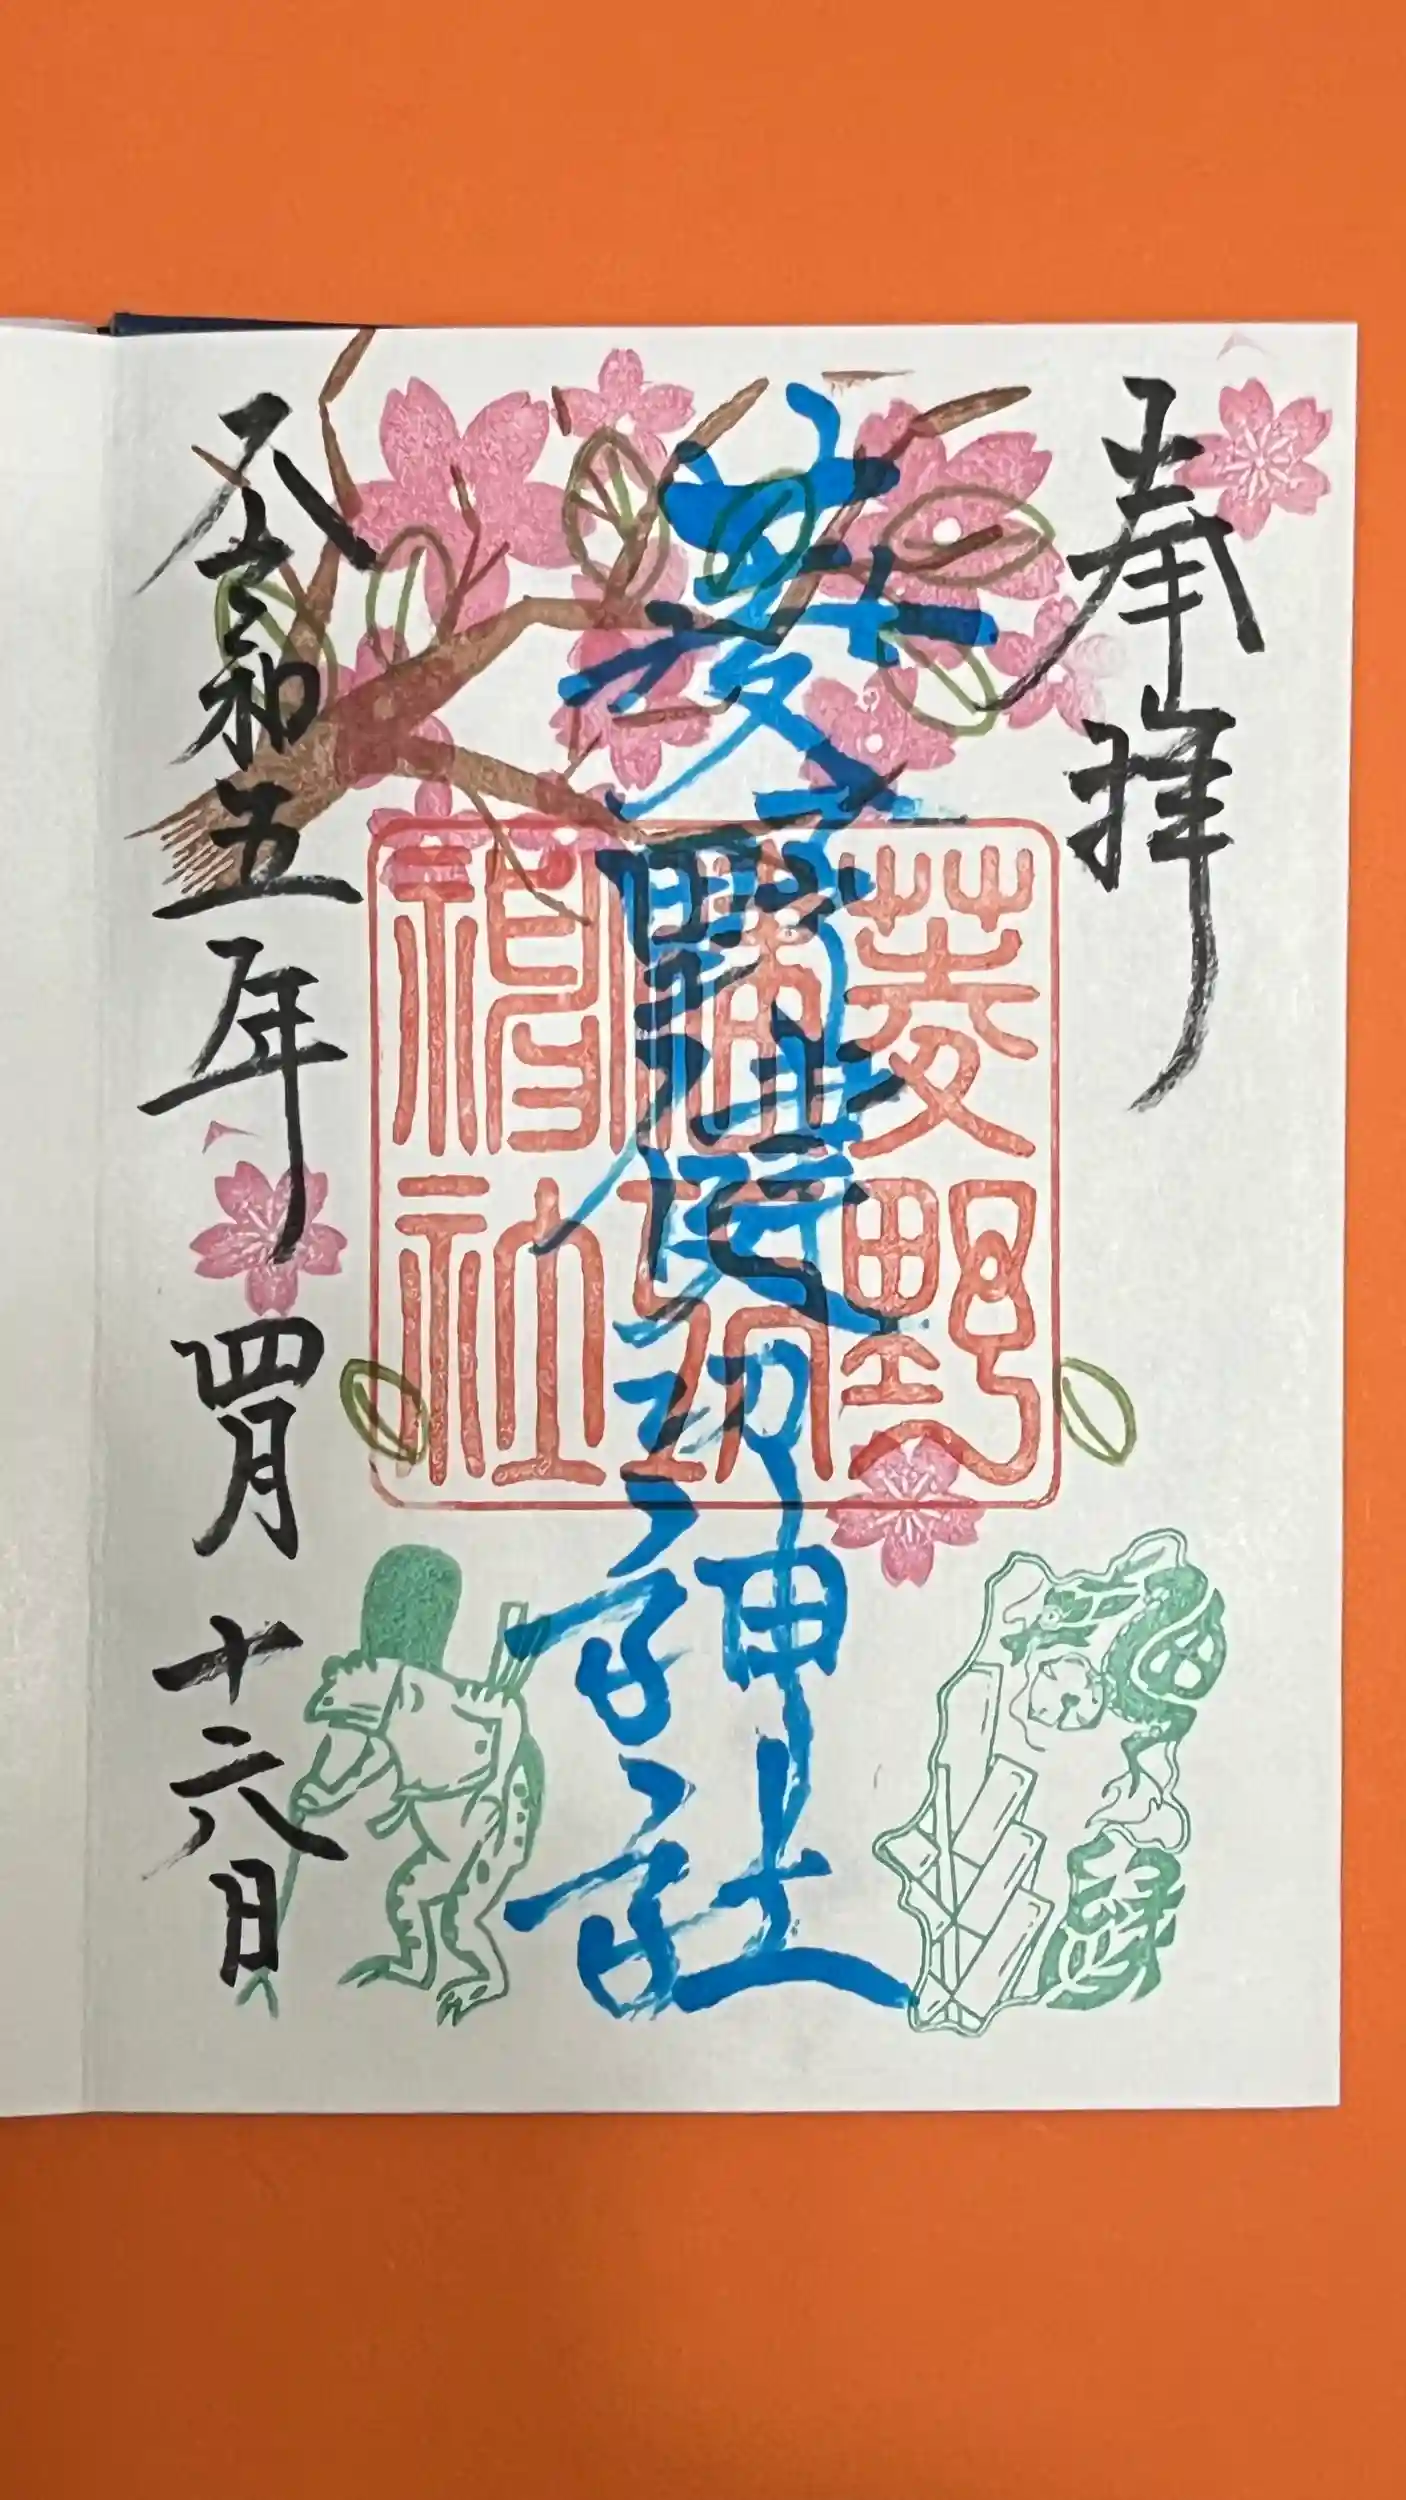 奉拝
菱野健功神社
令和五年四月十六日
菱野